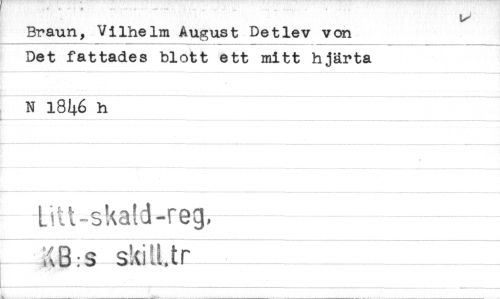 Braun, Vilhelm August Detlev von
Det fattades blott ett mitt hjärta
N 1846 h
Litt-skald-reg.
KB:s skill.tr